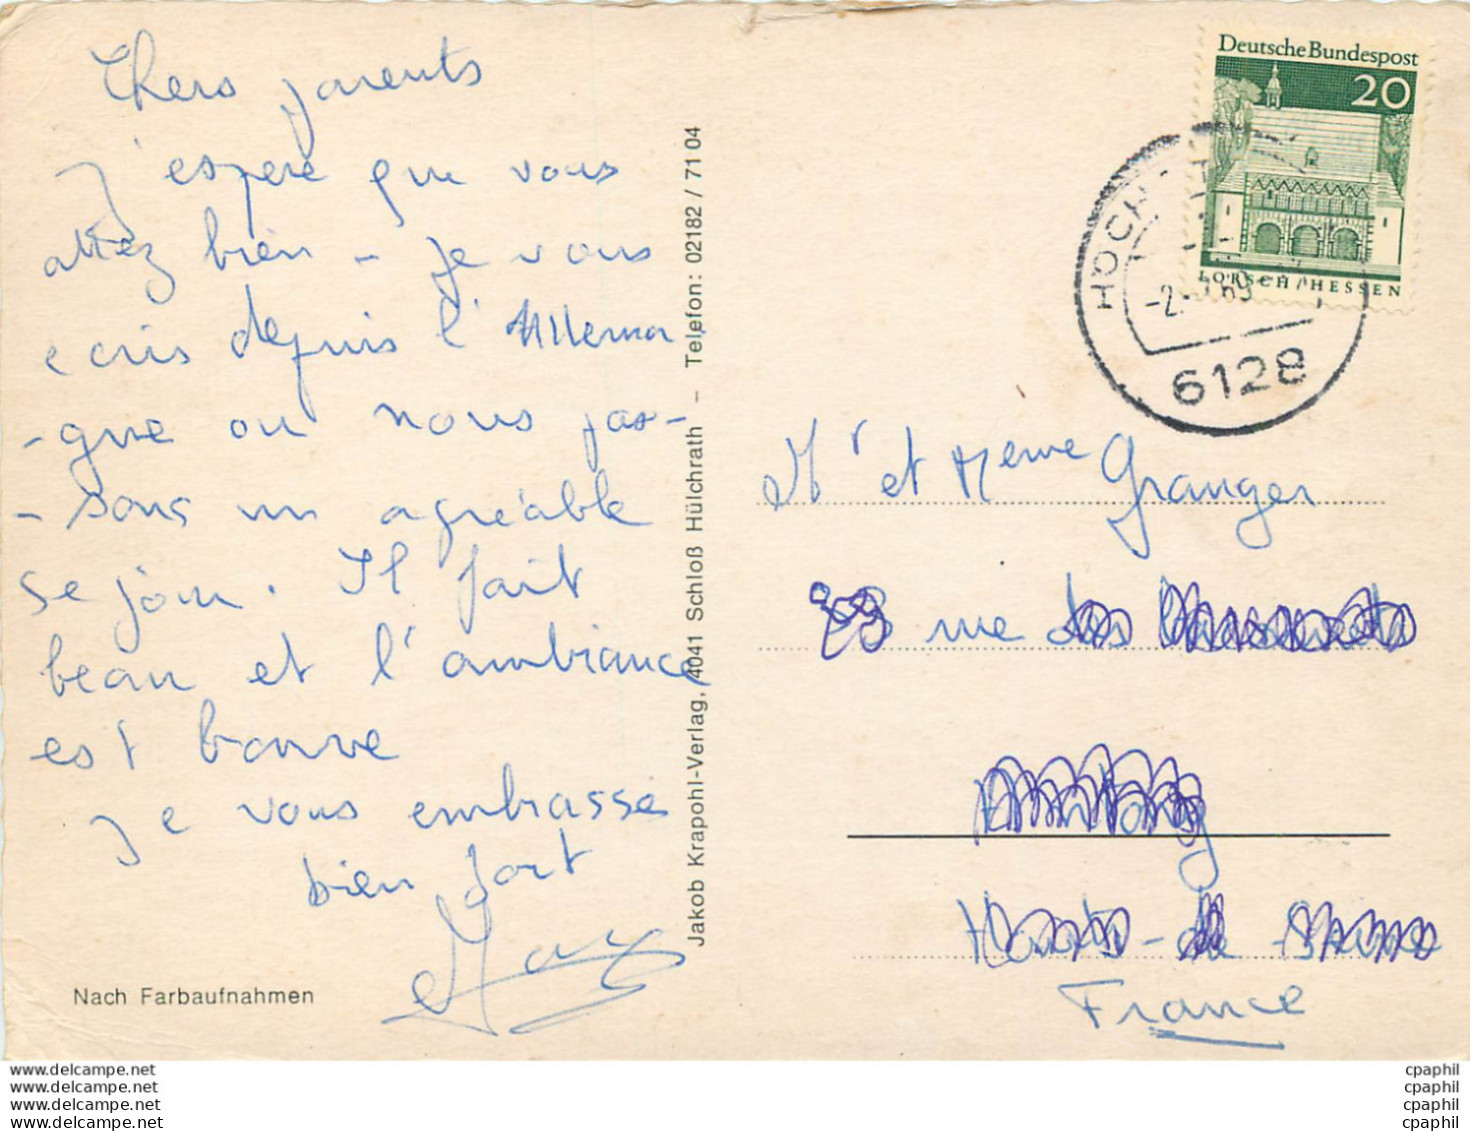 Chers parents
J'espere que vous
allez bien - Je vous
ecris depuis l'Allema
-gne ou nous pas-
-sons un agréable
sejour. Il fait
beau et l'ambiance
est bonne
Je vous embrasse
bien fort
Nach Farbaufnahmen
Jakob Krapohl-Verlag, 4041 Schloß Hülchrath – Telefon: 02182 / 71 04
Deutsche Bundespost
20
LORSCH/HESSEN
HÖCH
6128
Mr et Mme Granger
rue des
Hauts-de-Seine
France
www.delcampe.net
www.delcampe.net
www.delcampe.net
www.delcampe.net
cpaphil
cpaphil
cpaphil
cpaphil